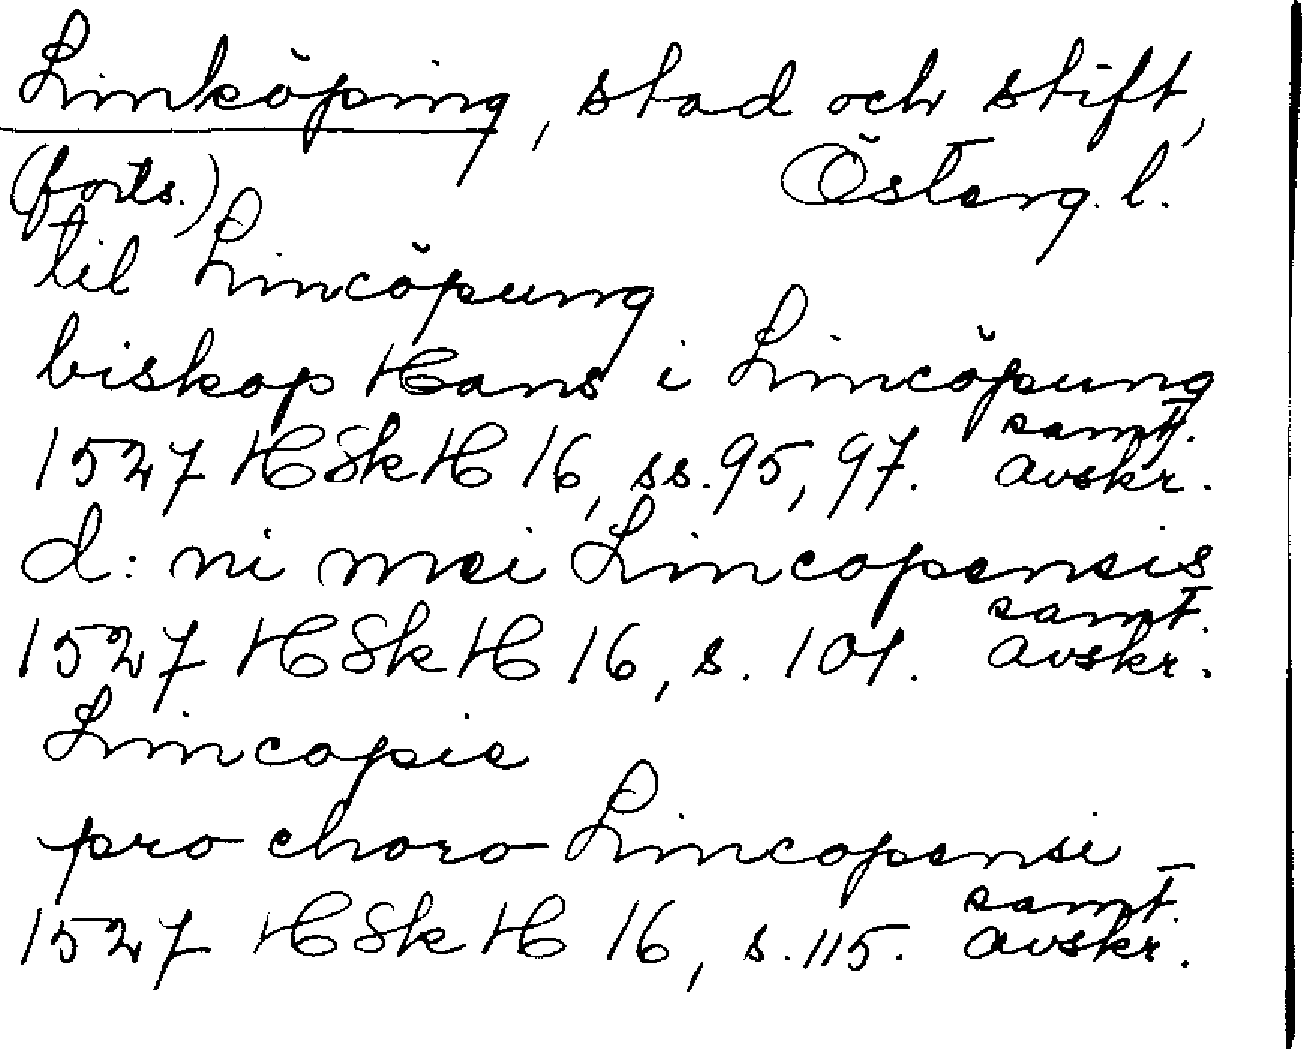 Linköping, stad och stift,
(forts.) Österg. l.
til Lincöpung
biskop Hans i Lincöpung
1527 HSkH 16, ss. 95, 97. samt. avskr.
d: ni mei Lincopensis
1527 HSkH 16, s. 101. samt. avskr.
Lincopie
pro choro Lincopensi
1527 HSkH 16, s. 115. samt. avskr.